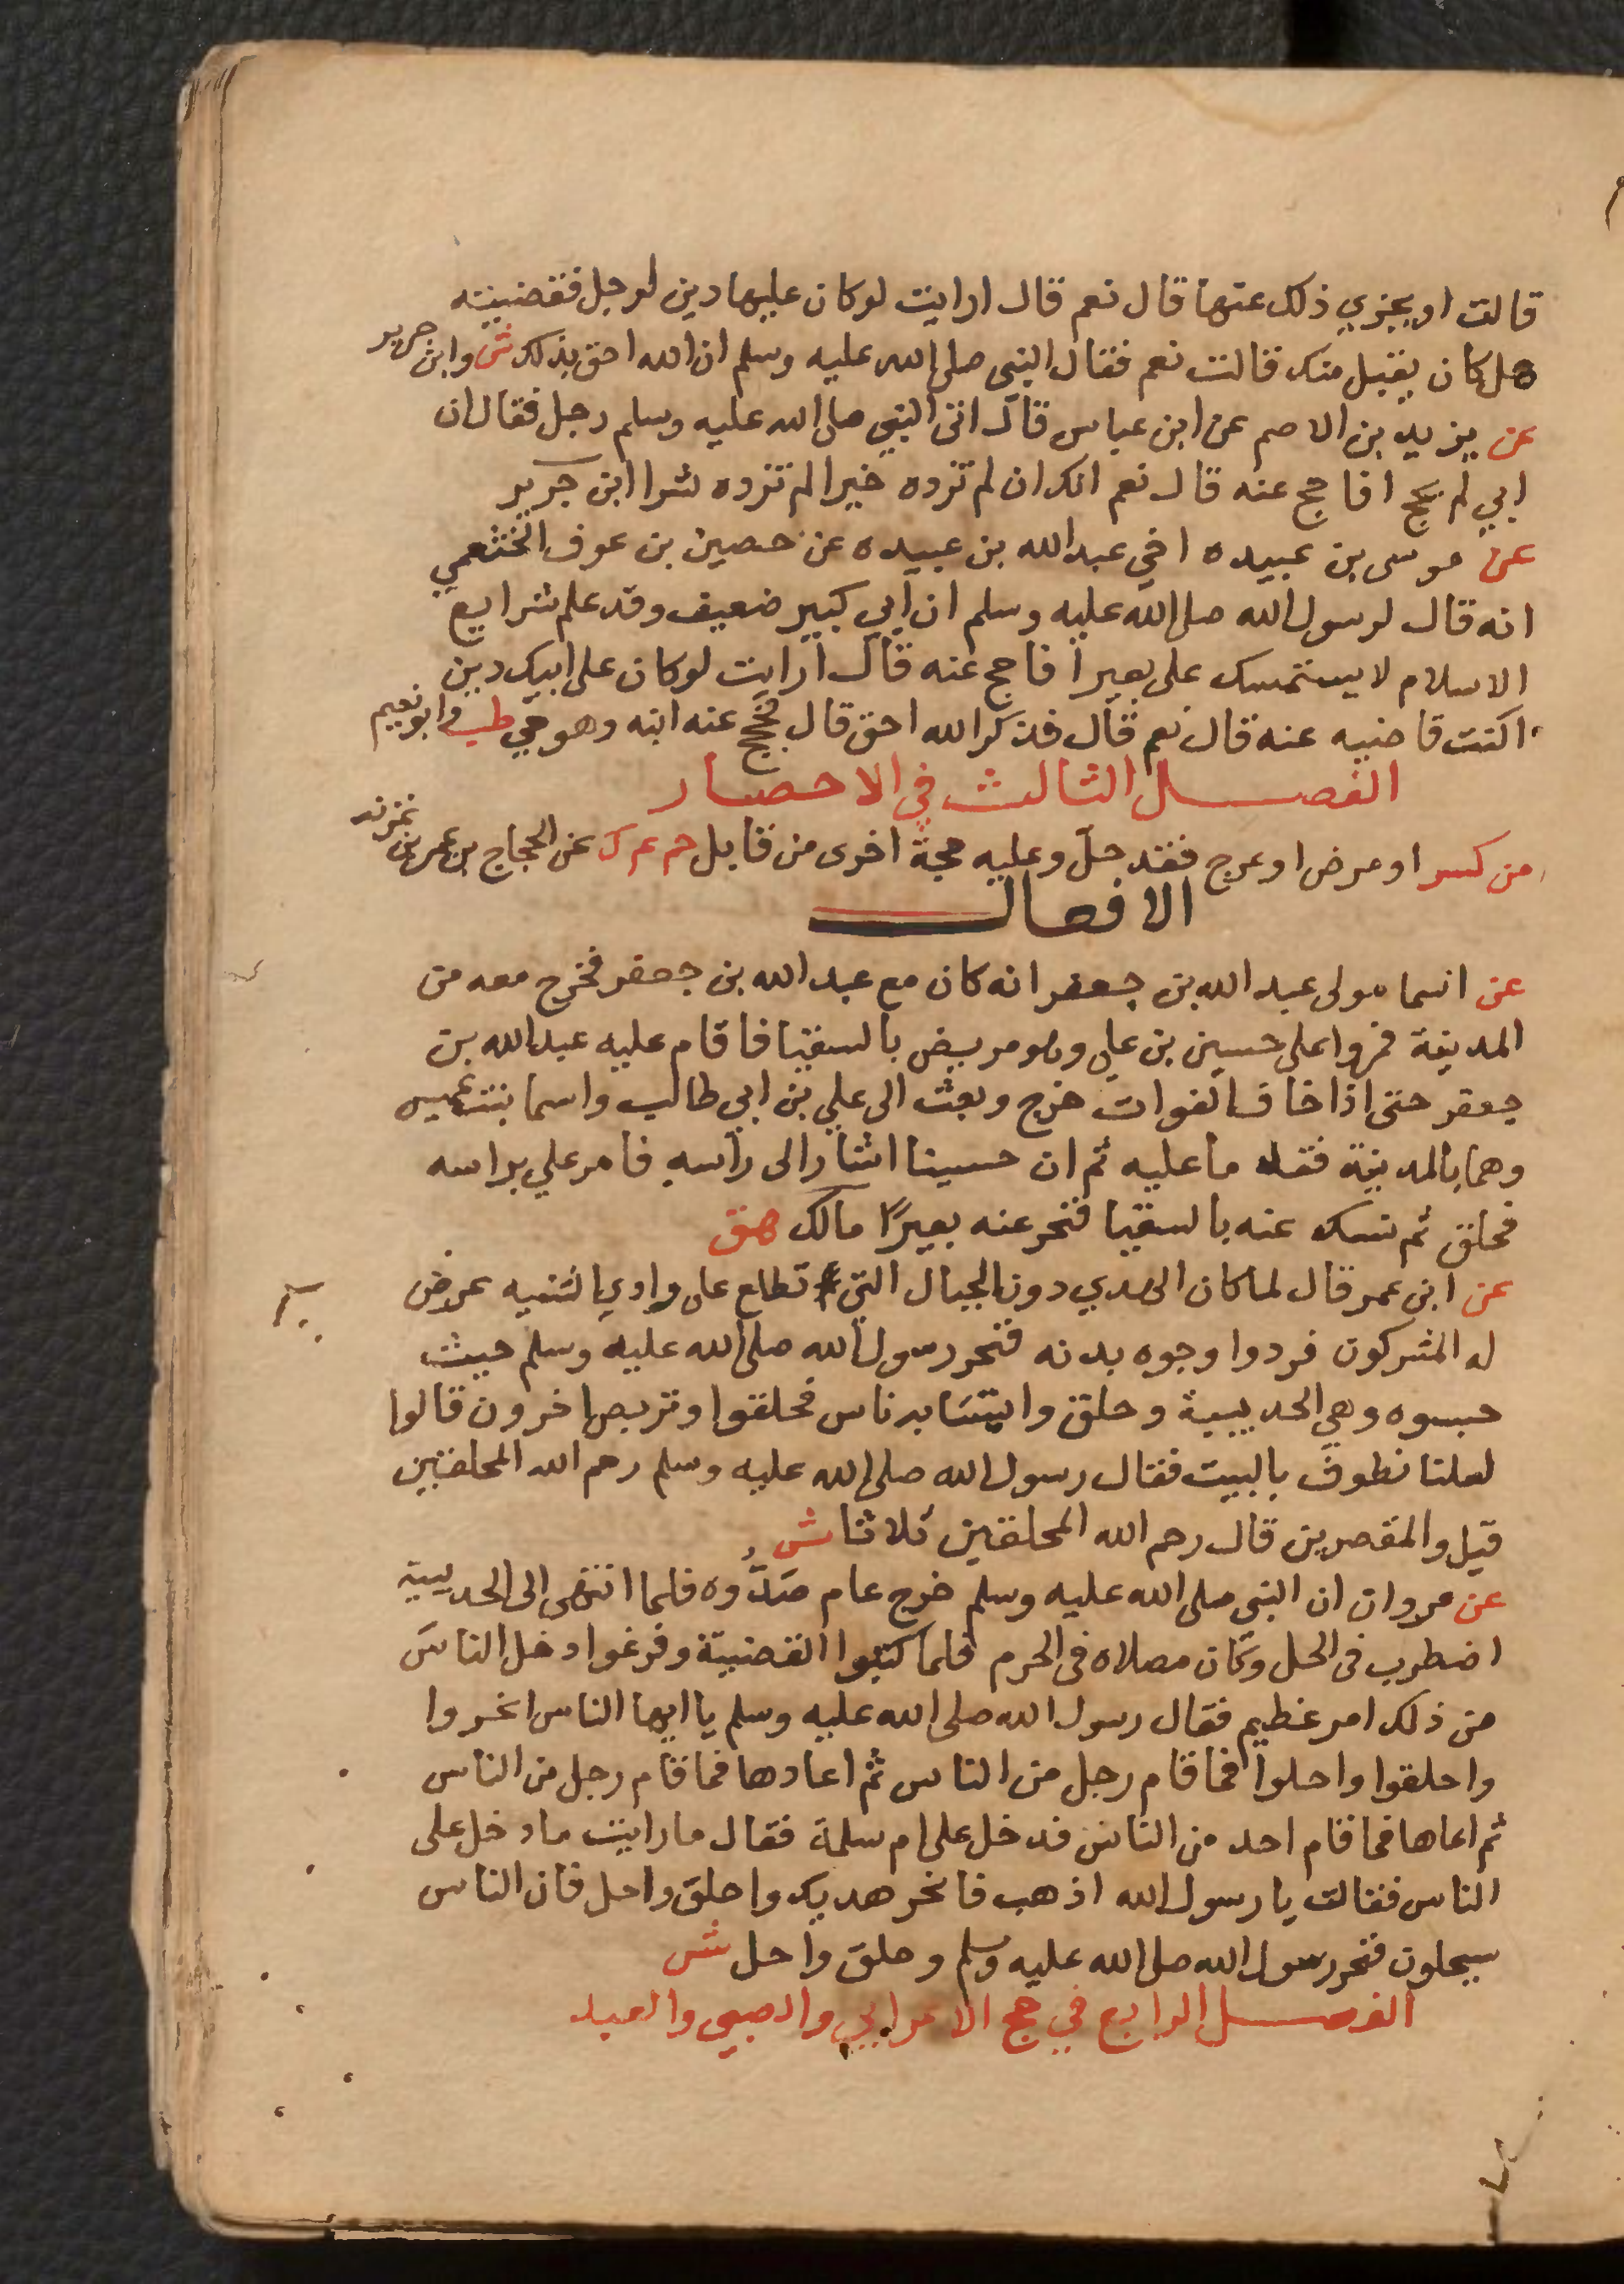 قالت او يجزي ذلك عنها قال نعم قال ارايت لو كان عليها دين لرجل فقضيته
هل كان يقبل منك قالت نعم فقال النبي صلى الله عليه وسلم ان الله احق بذلك ش وابن جرير
عن يزيد بن الاصم عن ابن عباس قال اتى النبي صلى الله عليه وسلم رجل فقال ان
ابي لم يحج افاحج عنه قال نعم انك ان لم تزده خيرا لم تزده شرا ابن جرير
عن موسى بن عبيده اخي عبد الله بن عبيده عن حصين بن عوف الخثعمي
انه قال لرسول الله صلى الله عليه وسلم ان ابي كبير ضعيف وقد علم شرايع
الاسلام لا يستمسك على بعير افاحج عنه قال ارايت لو كان على ابيك دين
اكنت قاضيه عنه قال نعم قال فدين الله احق قال فحج عنه ابنه وهو حي طب وابو نعيم
الفصل الثالث في الاحصار
من كسر او مرض او عرج فقد حل وعليه حجة اخرى من قابل حم ع ك عن الحجاج بن عمرو بن غزنه
الافعال
عن اسما مولى عبد الله بن جعفر انه كان مع عبد الله بن جعفر فخرج معه من
المدينة فمروا على حسين بن علي وهو مريض بالسقيا فاقام عليه عبد الله بن
جعفر حتى اذا خاف الفوات خرج وبعث الى علي بن ابي طالب واسما بنت عميس
وهما بالمدينة فقدما عليه ثم ان حسينا اشار الى راسه فامر علي براسه
فحلق ثم نسك عنه بالسقيا فنحر عنه بعيرًا مالك هق
عن ابن عمر قال لما كان الهدي دون الجبال التي تطلع على وادي الثنيه عرض
له المشركون فردوا وجوه بدنه فنحر رسول الله صلى الله عليه وسلم حيث
حبسوه وهي الحديبية وحلق وايتسا به ناس فحلقوا وتربص اخرون قالوا
لعلنا نطوف بالبيت فقال رسول الله صلى الله عليه وسلم رحم الله المحلقين
قيل والمقصرين قال رحم الله المحلقين ثلاثا ش
عن مروان ان النبي صلى الله عليه وسلم خرج عام صَدُّوه فلما انتهى الى الحديبية
اضطرب في الحل وكان مصلاه في الحرم فلما كتبوا القضية وفرغوا دخل الناس
من ذلك امر عظيم فقال رسول الله صلى الله عليه وسلم يا ايها الناس انحروا
واحلقوا واحلوا فما قام رجل من الناس ثم اعادها فما قام رجل من الناس
ثم اعاها فما قام احد من الناس فدخل على ام سلمة فقال ما رايت ما دخل على
الناس فقالت يا رسول الله اذهب فانحر هديك واحلق واحل فان الناس
سيحلون فنحر رسول الله صلى الله عليه وسلم وحلق واحل ش
الفصل الرابع في حج الاعرابي والصبي والعبد